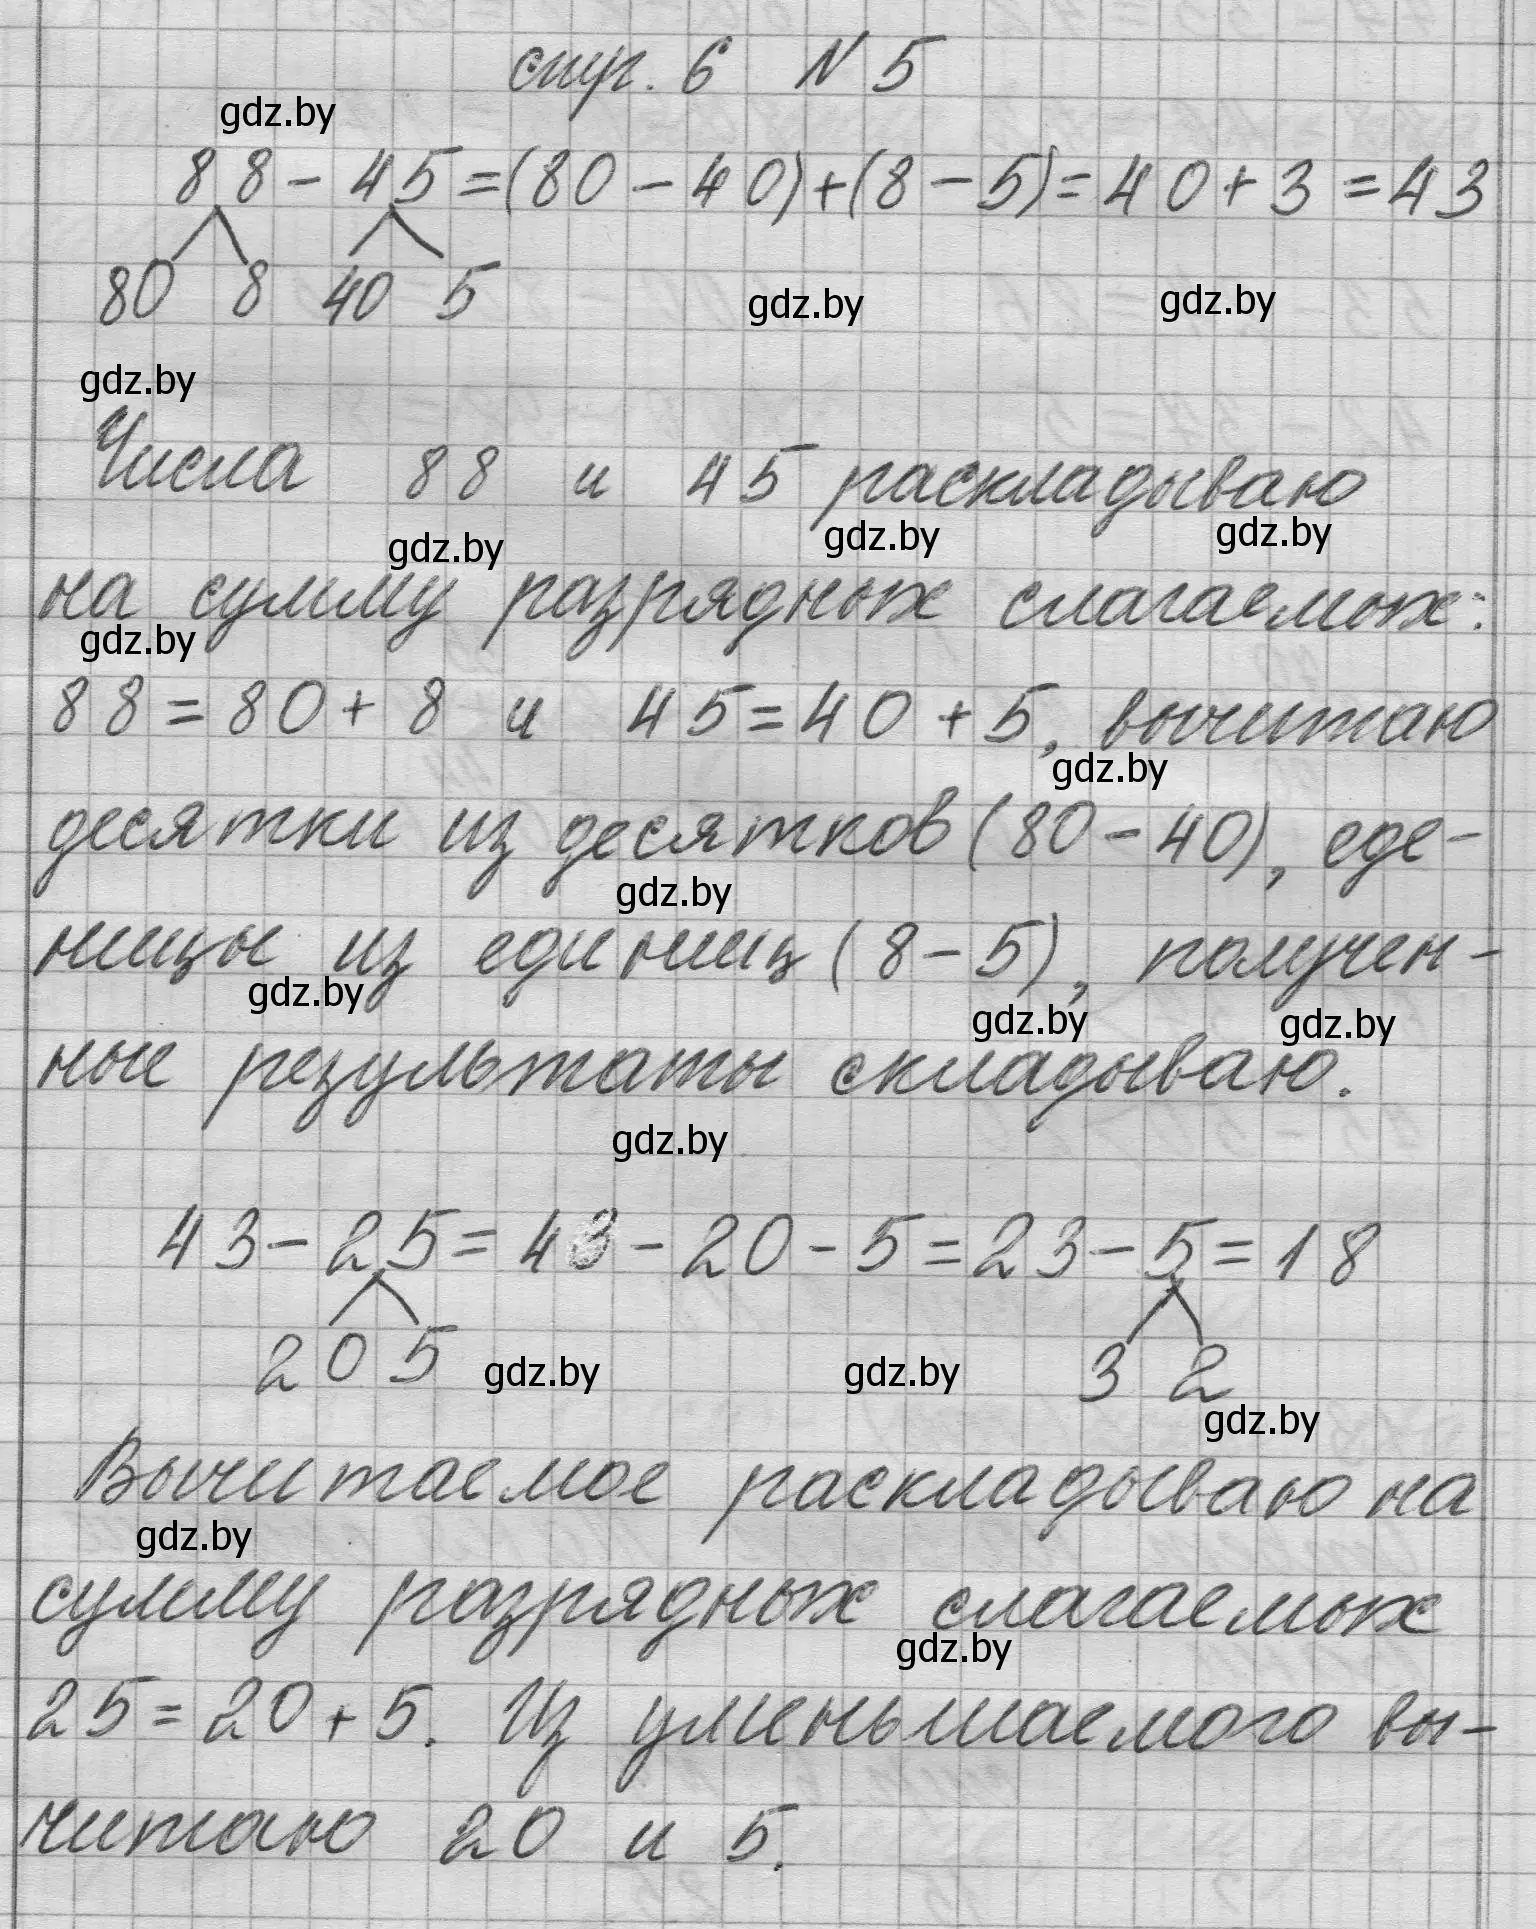 стр. 6 N 5
gdz.by
88 - 45 = (80 - 40) + (8 - 5) = 40 + 3 = 43
80 8 40 5
gdz.by gdz.by
gdz.by
Числа 88 и 45 раскладываю
gdz.by gdz.by gdz.by
на сумму разрядных слагаемых:
gdz.by
88 = 80 + 8 и 45 = 40 + 5, вычитаю
gdz.by
десятки из десятков (80 - 40), еде-
gdz.by
ницы из единиц (8 - 5), получен-
gdz.by gdz.by gdz.by
ные результаты складываю.
gdz.by
43 - 25 = 43 - 20 - 5 = 23 - 5 = 18
20 5 3 2
gdz.by gdz.by
gdz.by
Вычитаемое раскладываю на
gdz.by
сумму разрядных слагаемых
gdz.by
25 = 20 + 5. Из уменьшаемого вы-
читаю 20 и 5.